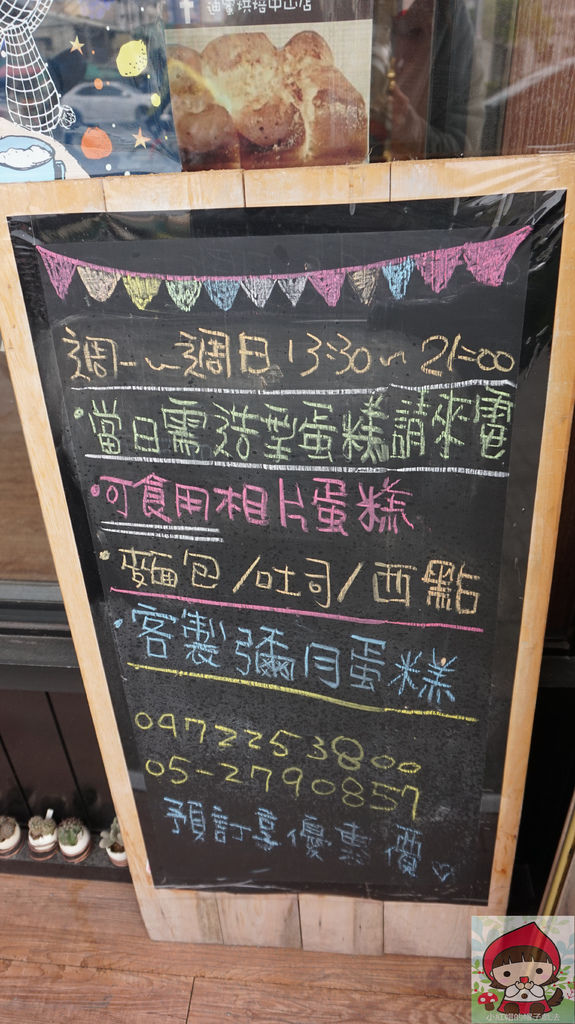 迪蒙烘焙中山店
週一～週日 13:30～21:00
·當日需造型蛋糕請來電
·可食用相片蛋糕
·麵包/吐司/西點
·客製彌月蛋糕
0972253800
05-2790857
預訂享優惠價♡